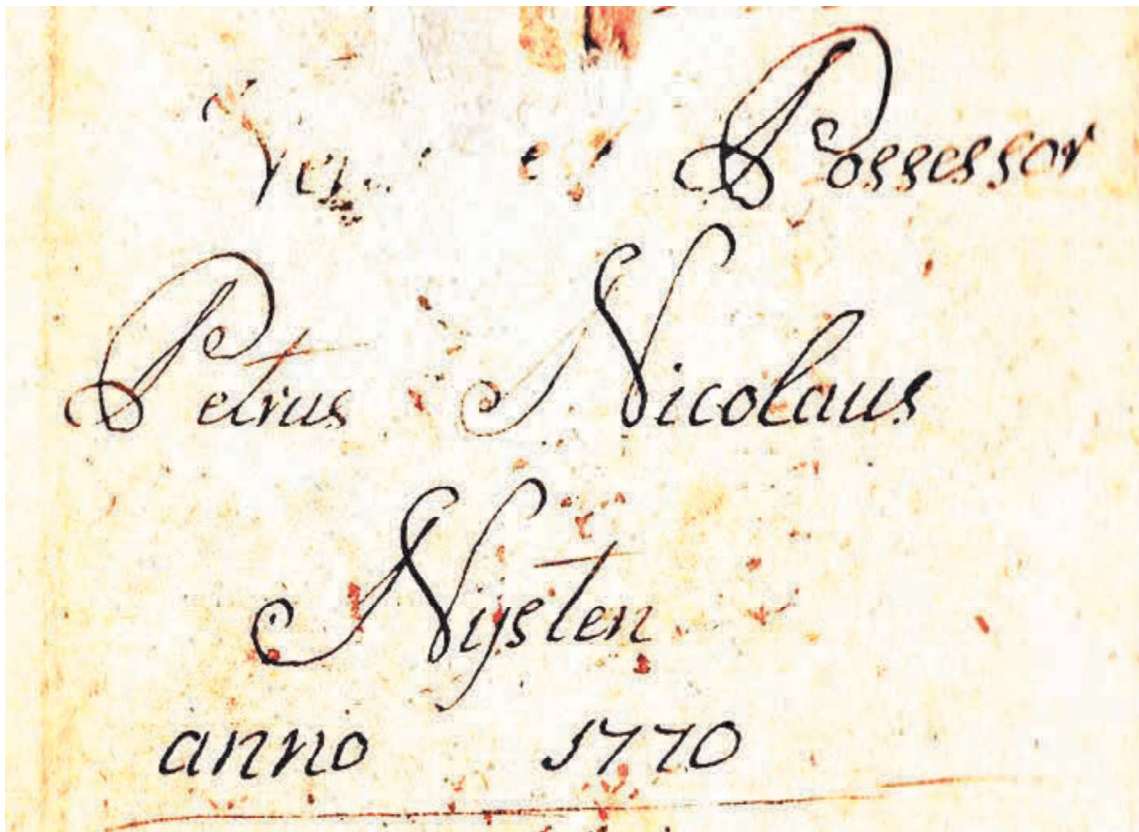 Possessor
Petrus Nicolaus
Nijsten
anno 1770